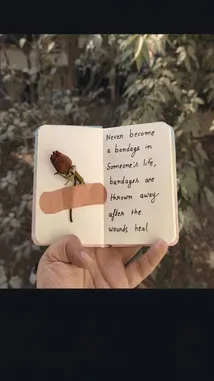 Never become
a bandage in
Someone's life,
bandages are
thrown away
after the
wounds heal